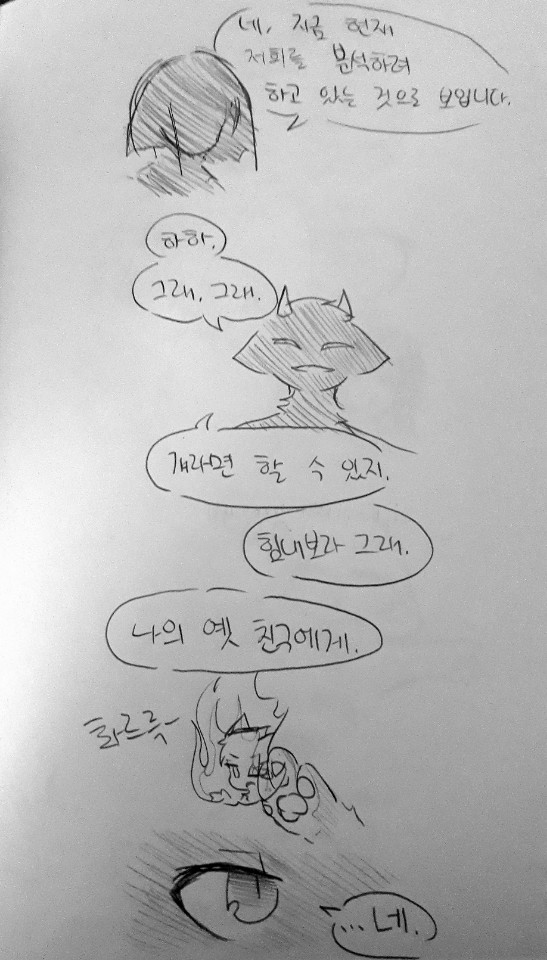 네, 지금 현재
저희를 분석하려
하고 있는 것으로 보입니다.
하하.
그래, 그래.
걔라면 할 수 있지.
힘내보라 그래.
나의 옛 친구에게.
화르륵-
...네.